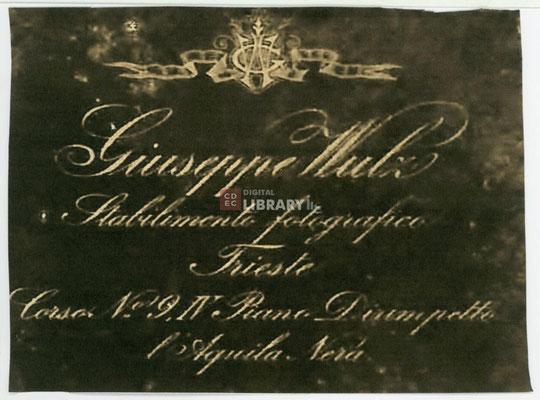 GW
Giuseppe Wulz
CDEC DIGITAL LIBRARY
Stabilimento fotografico
Trieste
Corso Nº 9, IV Piano Dirimpetto
l'Aquila Nera